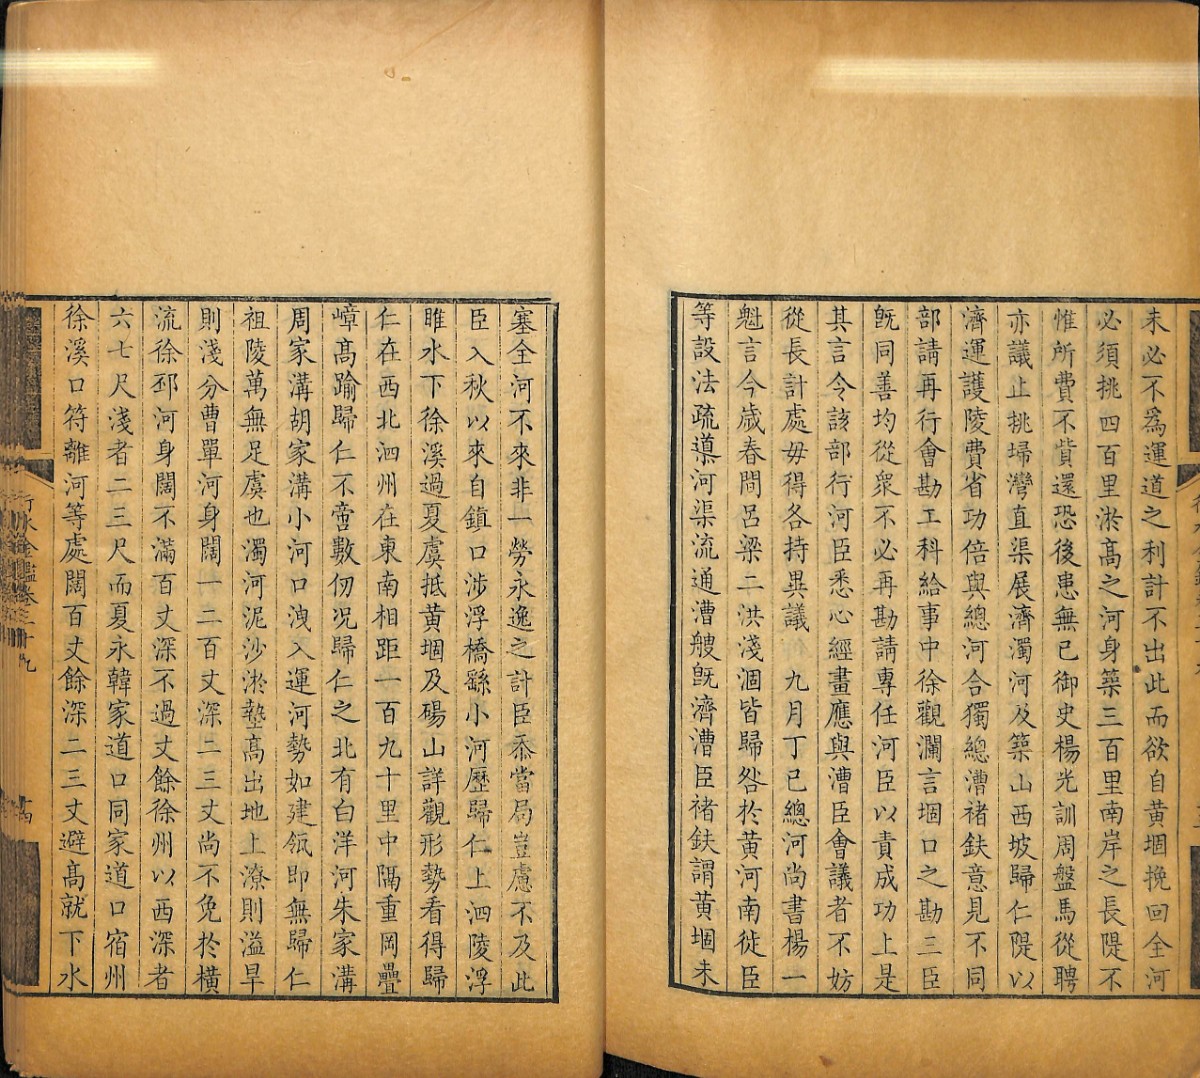 未必不爲運道之利計不出此而欲自黄堌挽回全河
必須挑四百里淤髙之河身築三百里南岸之長隄不
惟所費不貲還恐後患無已御史楊光訓周盤馬從聘
亦議止挑埽灣直渠展濟濁河及築山西坡歸仁隄以
濟運護陵費省功倍與總河合獨總漕褚鈇意見不同
部請再行會勘工科給事中徐觀瀾言堌口之勘三臣
旣同善均從衆不必再勘請專任河臣以責成功上是
其言令該部行河臣悉心經畫應與漕臣會議者不妨
從長計處毋得各持異議 九月丁巳總河尚書楊一
魁言今歲春間呂梁二洪淺涸皆歸咎於黄河南徙臣
等設法疏導河渠流通漕艘旣濟漕臣褚鈇謂黄堌未
塞全河不來非一勞永逸之計臣忝當局豈慮不及此
臣入秋以來自鎮口涉浮橋繇小河歷歸仁上泗陵浮
睢水下徐溪過夏虞抵黄堌及碭山詳觀形勢看得歸
仁在西北泗州在東南相距一百九十里中隔重岡疊
嶂髙踰歸仁不啻數仞况歸仁之北有白洋河朱家溝
周家溝胡家溝小河口洩入運河勢如建瓴即無歸仁
祖陵萬無足虞也濁河泥沙淤墊髙出地上潦則溢旱
則淺分曹單河身闊一二百丈深二三丈尚不免於橫
流徐邳河身闊不滿百丈深不過丈餘徐州以西深者
六七尺淺者二三尺而夏永韓家道口同家道口宿州
徐溪口符離河等處闊百丈餘深二三丈避髙就下水
行水金鑑卷三十九